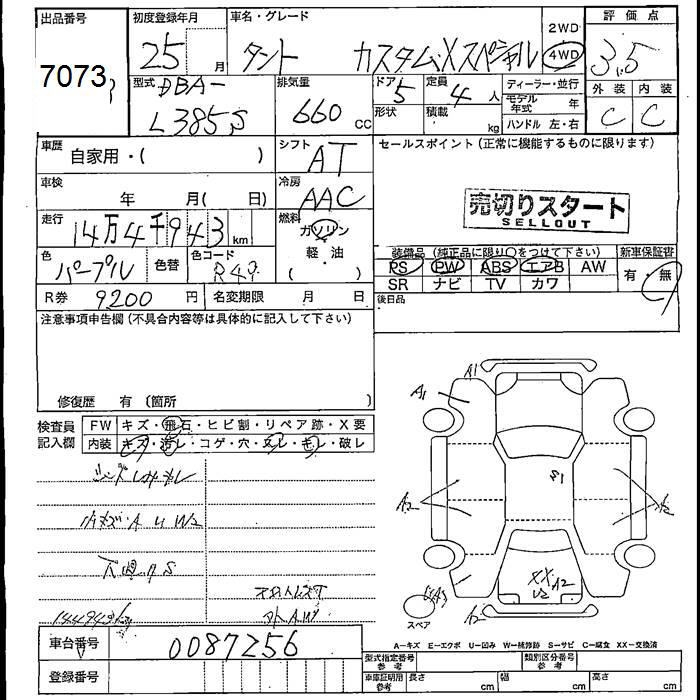 出品番号 初度登録年月 車名・グレード 2WD 評価点
7073
25 月 タント カスタムXスペシャル 4WD 3.5
外装 内装
C C
型式 DBA- 排気量 ドア 5 定員 4 人 ディーラー・並行
L385S 660 CC 形状 積載 kg モデル年式 年
ハンドル 左・右
車歴 自家用・( ) シフト AT セールスポイント(正常に機能するものに限ります)
車検 年 月( 日) 冷房 AAC
売切りスタート
SELLOUT
走行 14万4千943km 燃料 ガソリン
軽・油
( ・ )
色 パープル 色替 色コード
装備品(純正品に限り○をつけて下さい) 新車保証書
PS PW ABS エアB AW 有・無
SR ナビ TV カワ
後日品
R券 9200 円 名変期限 月 日
注意事項申告欄(不具合内容等は具体的に記入して下さい)
修復歴 有(箇所 )
検査員記入欄 FW キズ・飛石・ヒビ割・リペア跡・X要
内装 キズ・汚レ・コゲ・穴・スレ・キレ・破レ
A1
A1
S1
A2
XX A2
U2
A2
スペア
A-キズ E-エクボ U-凹み W-補修跡 S-サビ C-腐食 XX-交換済
車台番号 0087256
登録番号
型式指定番号参考 類別区分番号参考
車庫証明用参考 長さ cm 幅 cm 高さ cm